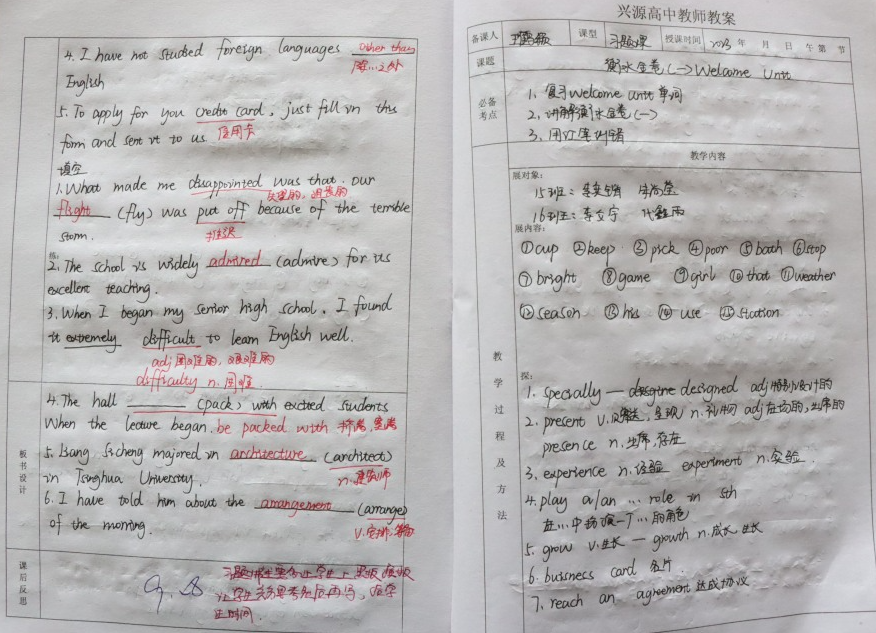 4. I have not studied foreign languages other than
除...之外
English
5. To apply for you credit card, just fill in this
form and sent it to us. 信用卡
填空
1. What made me disappointed was that our
失望的, 沮丧的
flight (fly) was put off because of the terrible
storm. 推迟
练:
2. The school is widely admired (admire) for its
excellent teaching.
3. When I began my senior high school, I found
it extremely difficult to learn English well.
adj 困难的, 艰难的
difficulty n. 困难
板书设计
4. The hall ______ (pack) with excited students
When the lecture began. be packed with 挤满, 塞满
5. Liang Sicheng majored in architecture (architect)
in Tsinghua University. n. 建筑师
6. I have told him about the arrangement (arrange)
of the morning. v. 安排, 筹备
课后反思
兴源高中教师教案
备课人 课型 习题课 授课时间 2023 年 月 日 午 第 节
课题 衡水金卷(一) Welcome Unit
必备考点
1. 复习 welcome unit 单词
2. 讲解衡水金卷(一)
3. 用让学生讲错
教学内容
教学过程及方法
展对象:
15班:
16班:
展内容:
①cup ②keep ③pick ④poor ⑤bath ⑥stop
⑦bright ⑧game ⑨girl ⑩that ⑪weather
⑫season ⑬his ⑭use ⑮station
探:
1. specially — designed adj 特别设计的
2. present v. 呈现 n. 礼物 adj 在场的, 出席的
presence n. 出席, 存在
3. experience n. 经验 experiment n. 实验
4. play a/an ... role in sth
在...中扮演一个...的角色
5. grow v. 生长 — growth n. 成长 生长
6. buisness card 名片
7. reach an agreement 达成协议